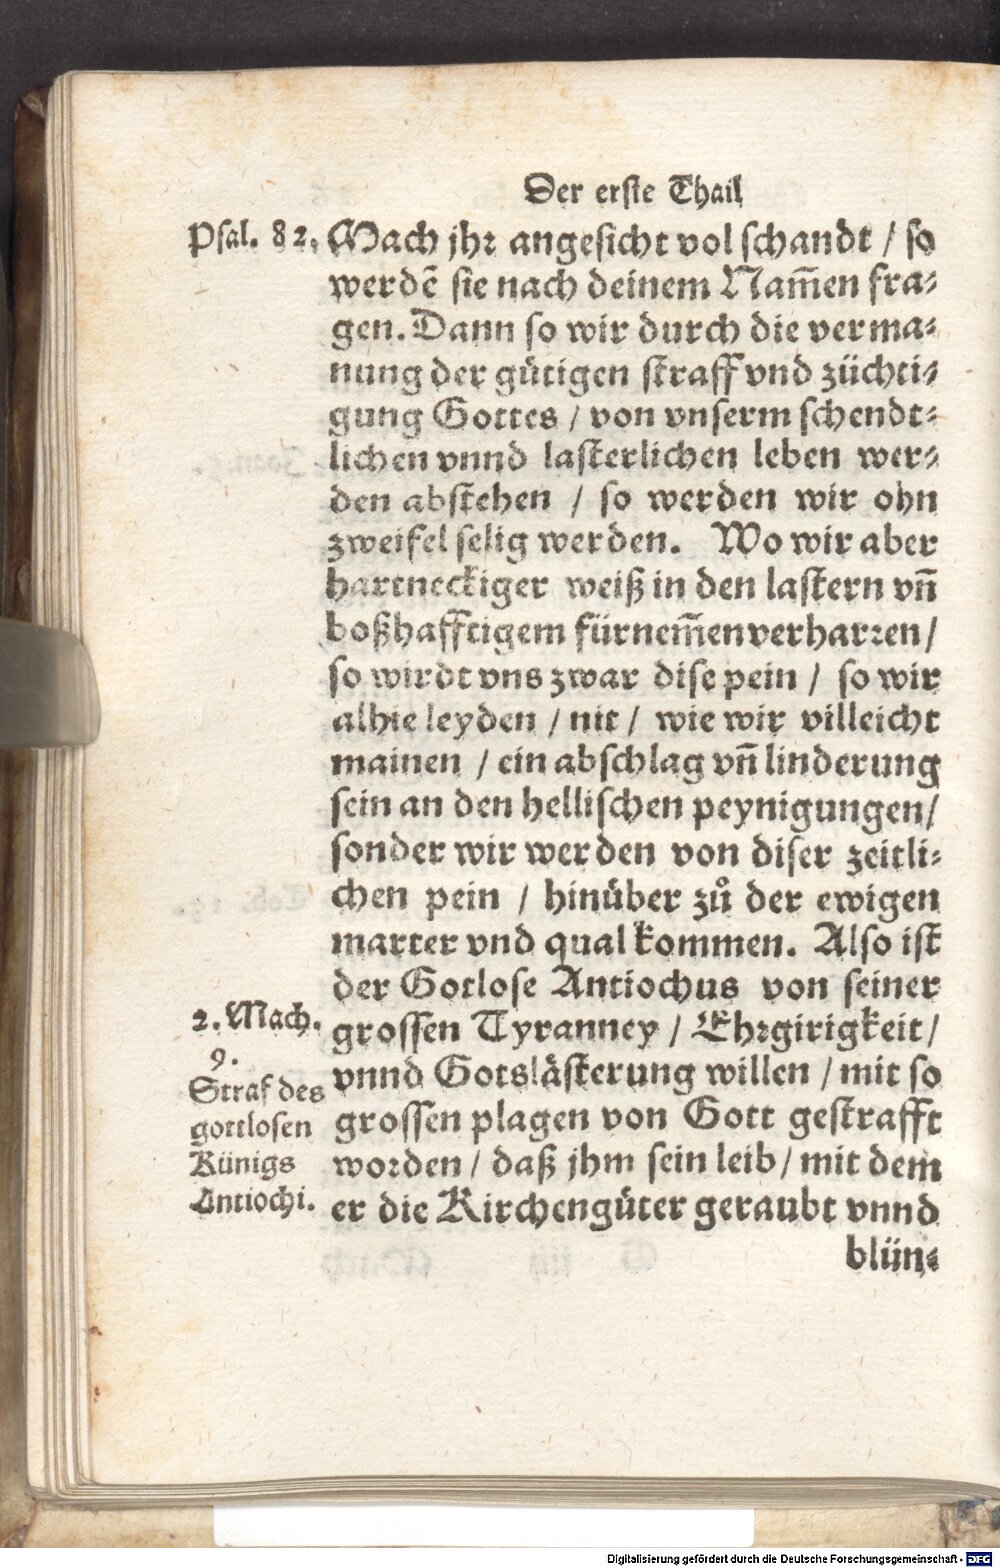 Der erste Thail
Psal. 82. Mach jhr angesicht vol schandt / so
werdẽ sie nach deinem Nam̃en fra⸗
gen. Dann so wir durch die verma⸗
nung der gütigen straff vnd züchti⸗
gung Gottes / von vnserm schendt⸗
lichen vnnd lasterlichen leben wer⸗
den abstehen / so werden wir ohn
zweifel selig werden. Wo wir aber
hartneckiger weiß in den lastern vñ
boßhafftigem fürnem̃en verharren /
so wirdt vns zwar dise pein / so wir
alhie leyden / nit / wie wir villeicht
mainen / ein abschlag vñ linderung
sein an den hellischen peynigungen /
sonder wir werden von diser zeitli⸗
chen pein / hinüber zů der ewigen
marter vnd qual kommen. Also ist
der Gotlose Antiochus von seiner
grossen Tyranney / Ehrgirigkeit /
vnnd Gotslästerung willen / mit so
grossen plagen von Gott gestrafft
worden / daß jhm sein leib / mit dem
er die Kirchengüter geraubt vnnd
blün⸗
2. Mach.
9.
Straf des
gottlosen
Künigs
Antiochi.
Digitalisierung gefördert durch die Deutsche Forschungsgemeinschaft - DFG